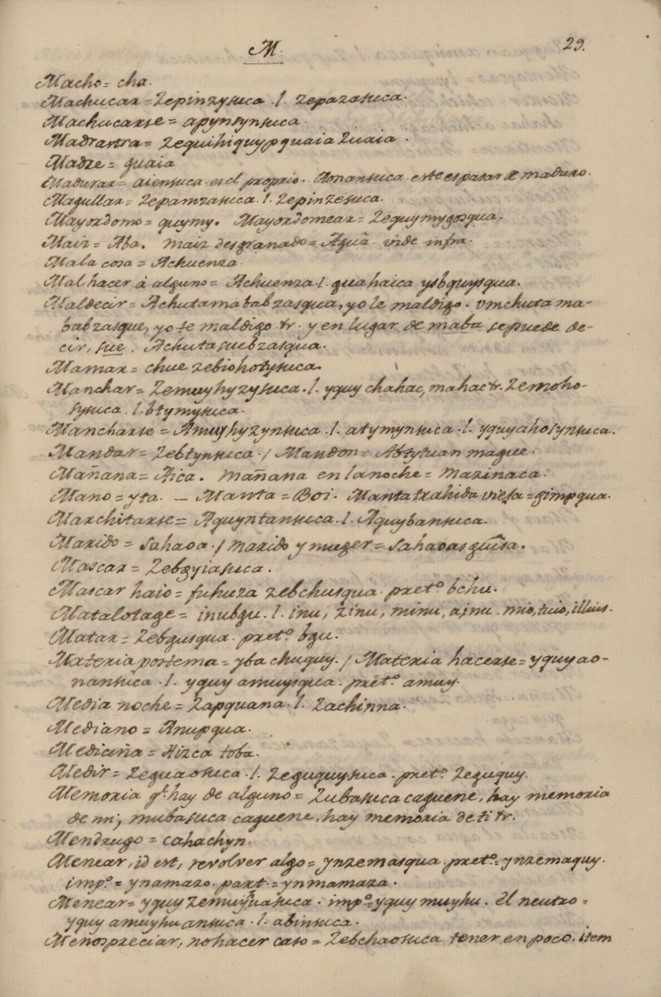 M. 29.
Macho = cha.
Machucar = Zepinzysuca .l. zepazasuca.
Machucarse = apynsynsuca.
Madrastra = zequihiquyp guaia Zuaia.
Madre = guaia
Madurar = aiensuca es el proprio. Aonansuca este es pasar de maduro.
Magullar = Zepamzasuca .l. Zepinzesuca.
Mayordomo = quymy. Mayordomear = Zequymygosqua.
Maiz = Aba. maiz desgranado = Aguâ. vide infra.
Mala cosa = Achuenza.
Mal hacer à alguno = Achuenza l. guahaica ysbquysqua.
Maldecir = Achutamababzasqua, yo le maldigo. vmchuta ma-
babzasque, yo te maldigo tr. y en lugar de maba se puede de-
cir, sue. Achutasuebzasqua.
Mamar = chue zebiohotysuca.
Manchar = Zemuyhyzysuca .l. yquy chahac, mahac tr. Zemoho-
sysuca .l. btymysuca.
Mancharse = Amuyhyzynsuca .l. atymynsuca .l. yquyahosynsuca.
Mandar = Zebtynsuca. / Mandon = Abtytuan mague.
Mañana = Aica. mañana en la noche = mazinaca.
Mano = yta. – Manta = Boi. Manta trahida vieja = gimpqua.
Marchitarse = Aquyntansuca .l. Aquybansuca.
Marido = sahaoa. / marido y muger = sahaoas guîsa.
Mascar = Zebgyiasuca.
Mascar haio = fuhuza zebchusqua. pret.º bchu.
Matalotage = inubgu .l. inu, zinu, minu, a,inu. mio, tuio, illius.
Matar = Zebgusqua. pret.º bgu.
Materia postema = yba chuquy. / Materia hacerse = yquy ao-
nansuca .l. yquy amuysqua. pret.º amuy.
Media noche = Zapquana .l. Zachinna.
Mediano = Anupqua.
Medicina = Hizca toba.
Medir = Zeguaosuca .l. Zeguquysuca. pret.º Zeguquy.
Memoria q.e hay de alguno = Zubasuca caguene, hay memoria
de mi, mubasuca caguene. hay memoria de ti tr.
Mendrugo = cahachyn.
Menear, id est, revolver algo = ynzemasqua. pret.º = ynzemaquy.
imp.º = ynamazo. part. = ynmamaza.
Menear = yquy zemuyhuasuca. imp.º = yquy muyhu. el neutro =
yquy amuyhuansuca .l. abinsuca.
Menospreciar, no hacer caso = Zebchaosuca tener en poco. item